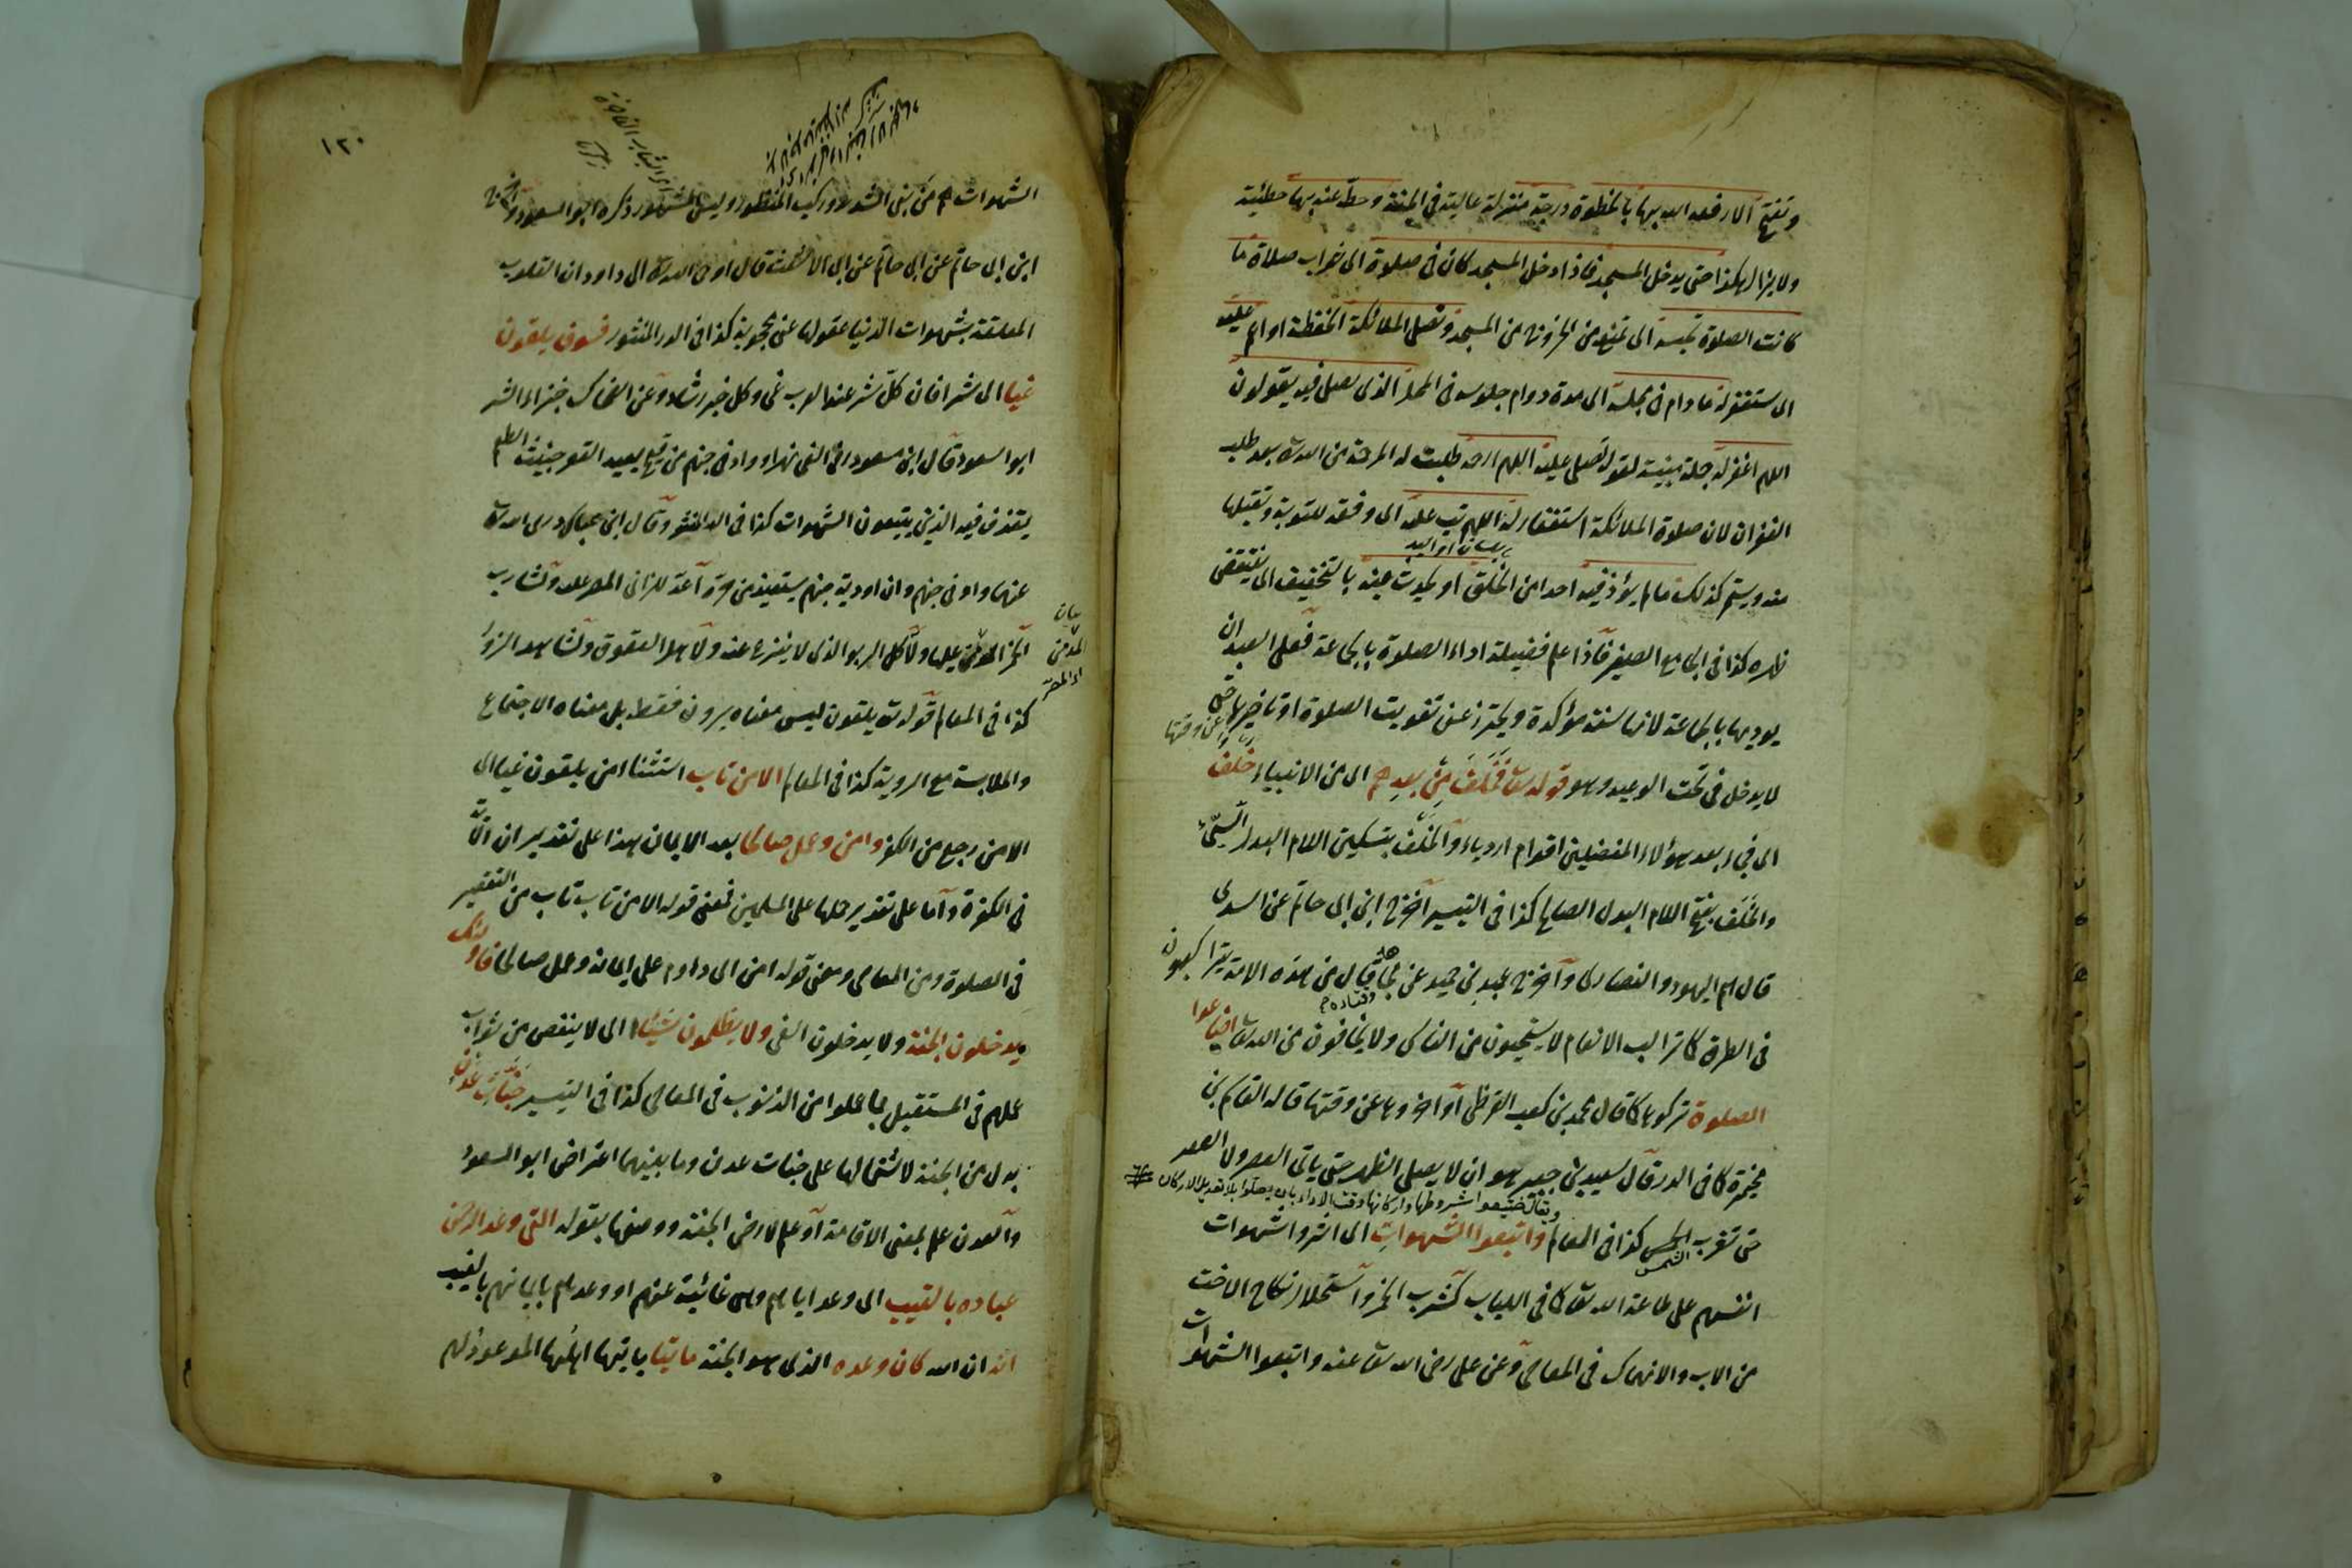 وتفتح الا رفعه الله بها بالخطوة درجة منزلة عالية في الجنة وحط عنه بها خطيئة
ولا يزال هكذا حتى يدخل المسجد فاذا دخل المسجد كان في صلوة اى ثواب صلاة ما
كانت الصلوة تحبسه اى تمنعه من الخروج من المسجد وتصلى الملائكة الحفظة او اعم عليه
اى ستغفر له ما دام في مجلسه اى مدة دوام جلوسه في المحل الذى يصلى فيه يقولون
اللهم اغفر له جملة مبينة لقوله تصلى عليه اللهم ارحمه طلبت له الرحمة من الله تع بعد طلب
الغفران لان صلوة الملائكة استغفار له اللهم تب عليه اى وفقه للتوبة وتقبلها
منه ويستمر كذلك ما لم يؤذ فيه احدا من الخلق او يحدث فيه بالتخفيف اى ينتقض
طهره كذا في الجامع الصغير فاذا علم فضيلة اداء الصلوة بالجماعة فعلى العبد ان
يوديها بالجماعة لانها سنة مؤكدة ويحترز عن تفويت الصلوة او تاخيرها حتى
عن وقتها
لا يدخل في تحت الوعيد وهو قوله تعا فخلف من بعدهم اى من الانبياء خلف
اى فجاء بعد هؤلاء المفضلين اقوام اردياء والخلف بتسكين اللام البدل السيّئ
والخلف بفتح اللام البدل الصالح كذا في التيسير اخرج ابن ابى حاتم عن السدى
قال هم اليهود والنصارى واخرج عبد بن حميد عن مجاهد قال من هذه الامة يتراكبون
وقتادة
في الطرق كما تراكب الانعام لا يستحيون من الناس ولا يخافون من الله تعا اضاعوا
الصلوة تركوها كما قال محمد بن كعب القرظى او اخروها عن وقتها قاله القاسم بن
مخيمرة كما في الدر قال سعيد بن جبير هو ان لا يصلى الظهر حتى ياتى العصر ولا العصر
ويقال ضيعوا شروطها واركانها وقت الاداء بان يصلوا بلا تعديل الاركان
حتى تغرب الشمس كذا في المعالم واتبعوا الشهوات اى اثروا شهوات
انفسهم على طاعة الله تعا كما في اللباب كشرب الخمر واستحلال نكاح الاخت
من الاب والانهماك في المعاصى وعن على رضى الله تعا عنه واتبعوا الشهوات
١٢٠
الشهوات هم من بنى الشديد وركب المنظور ولبس المشهور ذكره ابو السعود واخرج
ابن ابى حاتم عن ابى حاتم عن ابى الاشعث قال اوحى الله تع الى داود ان القلوب
المعلقة بشهوات الدنيا عقولها عنى محجوبة كذا في الدر المنثور فسوف يلقون
غيا اى شرا فان كل شر عند العرب غى وكل خير رشاد وعن الضحاك جزاء الشر
ابو السعود قال ابن مسعود رض الغى نهر او واد في جهنم من قيح بعيد القعر خبيث الطعم
يقذف فيه الذين يتبعون الشهوات كذا في الدر المنثور وقال ابن عباس رضى الله تع
عنهما واد في جهنم وان اودية جهنم يستعيذ من حره اعد للزانى المصر عليه ولشارب
الخمر المدمن عليها ولآكل الربوا الذى لا ينزع عنه ولاهل العقوق ولشاهد الزور
كذا في المعالم قوله تع يلقون ليس معناه يرون فقط بل معناه الاجتماع
والملابسة مع الروية كذا في المعالم الا من تاب استثنا من يلقون غيا اى
الا من رجع من الكفر وامن وعمل صالحا بعد الايمان هذا على تقدير ان الآية
في الكفرة واما على تقدير حملها على المسلمين فمعنى قوله الا من تاب تاب من التقصير
في الصلوة ومن المعاصى ومعنى قوله امن اى داوم على ايمانه وعمل صالحا فاولئك
يدخلون الجنة ولا يدخلون الغى ولا يظلمون شيئا اى لا ينقص من ثواب
عملهم في المستقبل بما عملوا من الذنوب في المعاصى كذا في التيسير جنات عدن
بدل من الجنة لاشتمالها على جنات عدن وما بينهما اعتراض ابو السعود
والعدن علم بمعنى الاقامة او علم لارض الجنة ووصفها بقوله التى وعد الرحمن
عباده بالغيب اى وعد اياهم وهى غائبة عنهم او وعدهم بايمانهم بالغيب
انه ان الله كان وعده الذى هو الجنة ماتيا ياتيها اهلها الموعود لهم